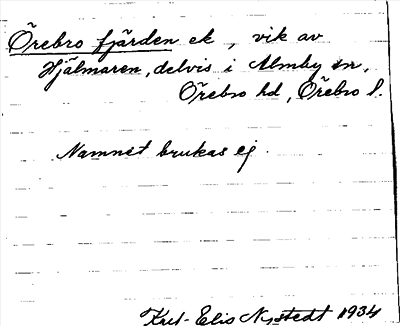 Örebro fjärden ek, vik av
Hjälmaren, delvis i Almby sn,
Örebro hd, Örebro l.
Namnet brukas ej.
Krit-Elis Nystedt 1934